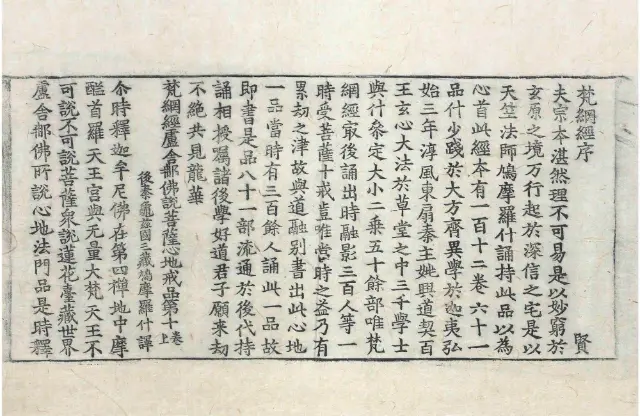 梵網經序 賢
夫宗本湛然理不可易是以妙窮於
玄原之境万行起於深信之宅是以
天竺法師鳩摩羅什誦持此品以為
心首此經本有一百十二卷六十一
品什少踐於大方齊異學於迦夷弘
始三年淳風東扇秦王姚興道契百
王玄心大法於草堂之中三千學士
與什叅定大小二乗五十餘部唯梵
網經㝡後誦出時融影三百人等一
時受菩薩十戒豈唯當時之益乃有
累劫之津故與道融別書出此心地
一品當時有三百餘人誦此一品故
即書是品八十一部流通於後代持
誦相授嘱諸後學好道君子願来劫
不絶共見龍華
梵網經盧舍那佛說菩薩心地戒品第十卷上
後秦龜茲國三藏鳩摩羅什譯
尒時釋迦牟尼佛在第四禪地中摩
醯首羅天王宮與无量大梵天王不
可說不可說菩薩衆說蓮花臺藏世界
盧舍那佛所說心地法門品是時釋